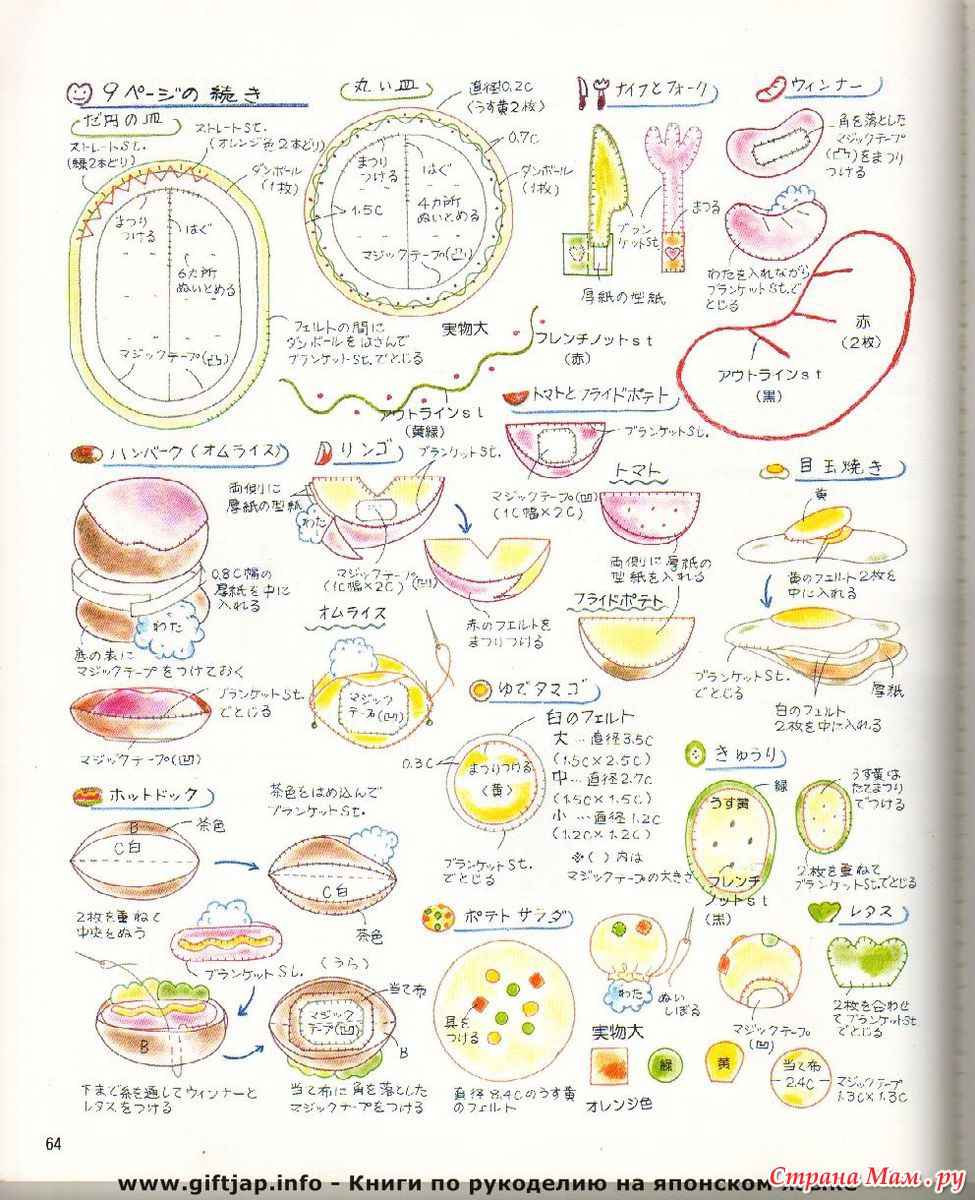 9ページの続き
だ円の皿
ストレートSt.
(緑2本どり)
ストレートSt.
(オレンジ色2本どり)
ダンボール
(1枚)
まつり
つける
はぐ
6カ所
ぬいとめる
マジックテープ(凸)
フェルトの間に
ダンボールをはさんで
ブランケットSt.でとじる
丸い皿
直径0.2C
(うす黄2枚)
0.7C
ダンボール
(1枚)
まつり
つける
はぐ
1.5C
4カ所
ぬいとめる
マジックテープ(凸)
実物大
フレンチノットst
(赤)
アウトラインst
(黄緑)
ナイフとフォーク
まつる
ブラン
ケットSt.
厚紙の型紙
ウィンナー
角を落とした
マジックテープ
(凸)をまつり
つける
わたを入れながら
ブランケットSt.で
とじる
赤
(2枚)
アウトラインst
(黒)
ハンバーク(オムライス)
0.8C幅の
厚紙を中に
入れる
わた
底の表に
マジックテープをつけておく
ブランケットSt.
でとじる
マジックテープ(凹)
リンゴ
ブランケットSt.
両側に
厚紙の型紙
わた
マジックテープ
(1C幅×2C)(凹)
赤のフェルトを
まつりつける
オムライス
マジック
テープ(凹)
トマトとフライドポテト
ブランケットSt.
マジックテープ(凹)
(1C幅×2C)
トマト
両側に厚紙の
型紙を入れる
フライドポテト
目玉焼き
黄
黄のフェルト2枚を
中に入れる
ブランケットSt.
でとじる
厚紙
白のフェルト
2枚を中に入れる
ゆでタマゴ
白のフェルト
大…直径3.5C
(1.5C×2.5C)
中…直径2.7C
(1.5C×1.5C)
小…直径1.2C
(1.2C×1.2C)
※( )内は
マジックテープの大きさ
0.3C
まつりつける
(黄)
ブランケットSt.
でとじる
きゅうり
緑
うす黄
うす黄は
たてまつり
でつける
フレンチ
ノットst
(黒)
2枚を重ねて
ブランケットSt.でとじる
ホットドック
B
C白
茶色
2枚を重ねて
中央をぬう
茶色をはめ込んで
ブランケットSt.
C白
茶色
ブランケットSt.
B
下まで糸を通してウィンナーと
レタスをつける
(うら)
当て布
マジック
テープ(凹)
B
当て布に角を落とした
マジックテープをつける
ポテトサラダ
具を
つける
直径8.4Cのうす黄
のフェルト
わた
ぬい
しぼる
マジックテープ
(凹)
実物大
オレンジ色
緑
黄
当て布
2.4C
マジックテープ
1.3C×1.3C
レタス
2枚を合わせ
てブランケットSt
でとじる
64
www.giftjap.info - Книги по рукоделию на японском языке
Страна Мам.ру